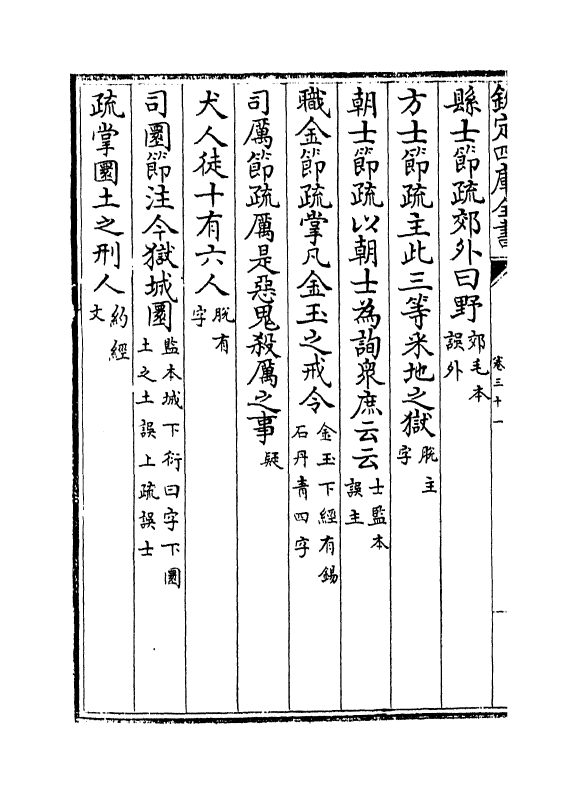 欽定四庫全書
卷三十一
縣士節疏郊外曰野郊毛本誤外
方士節疏主此三等采地之獄脫主字
朝士節疏以朝士為詢衆庶云云士監本誤主
職金節疏掌凡金玉之戒令金玉下經有錫石丹青四字
司厲節疏厲是惡鬼殺厲之事疑
犬人徒十有六人脫有字
司圜節注今獄城圜監本城下衍曰字下圜土之土誤上疏誤士
疏掌圜土之刑人約經文